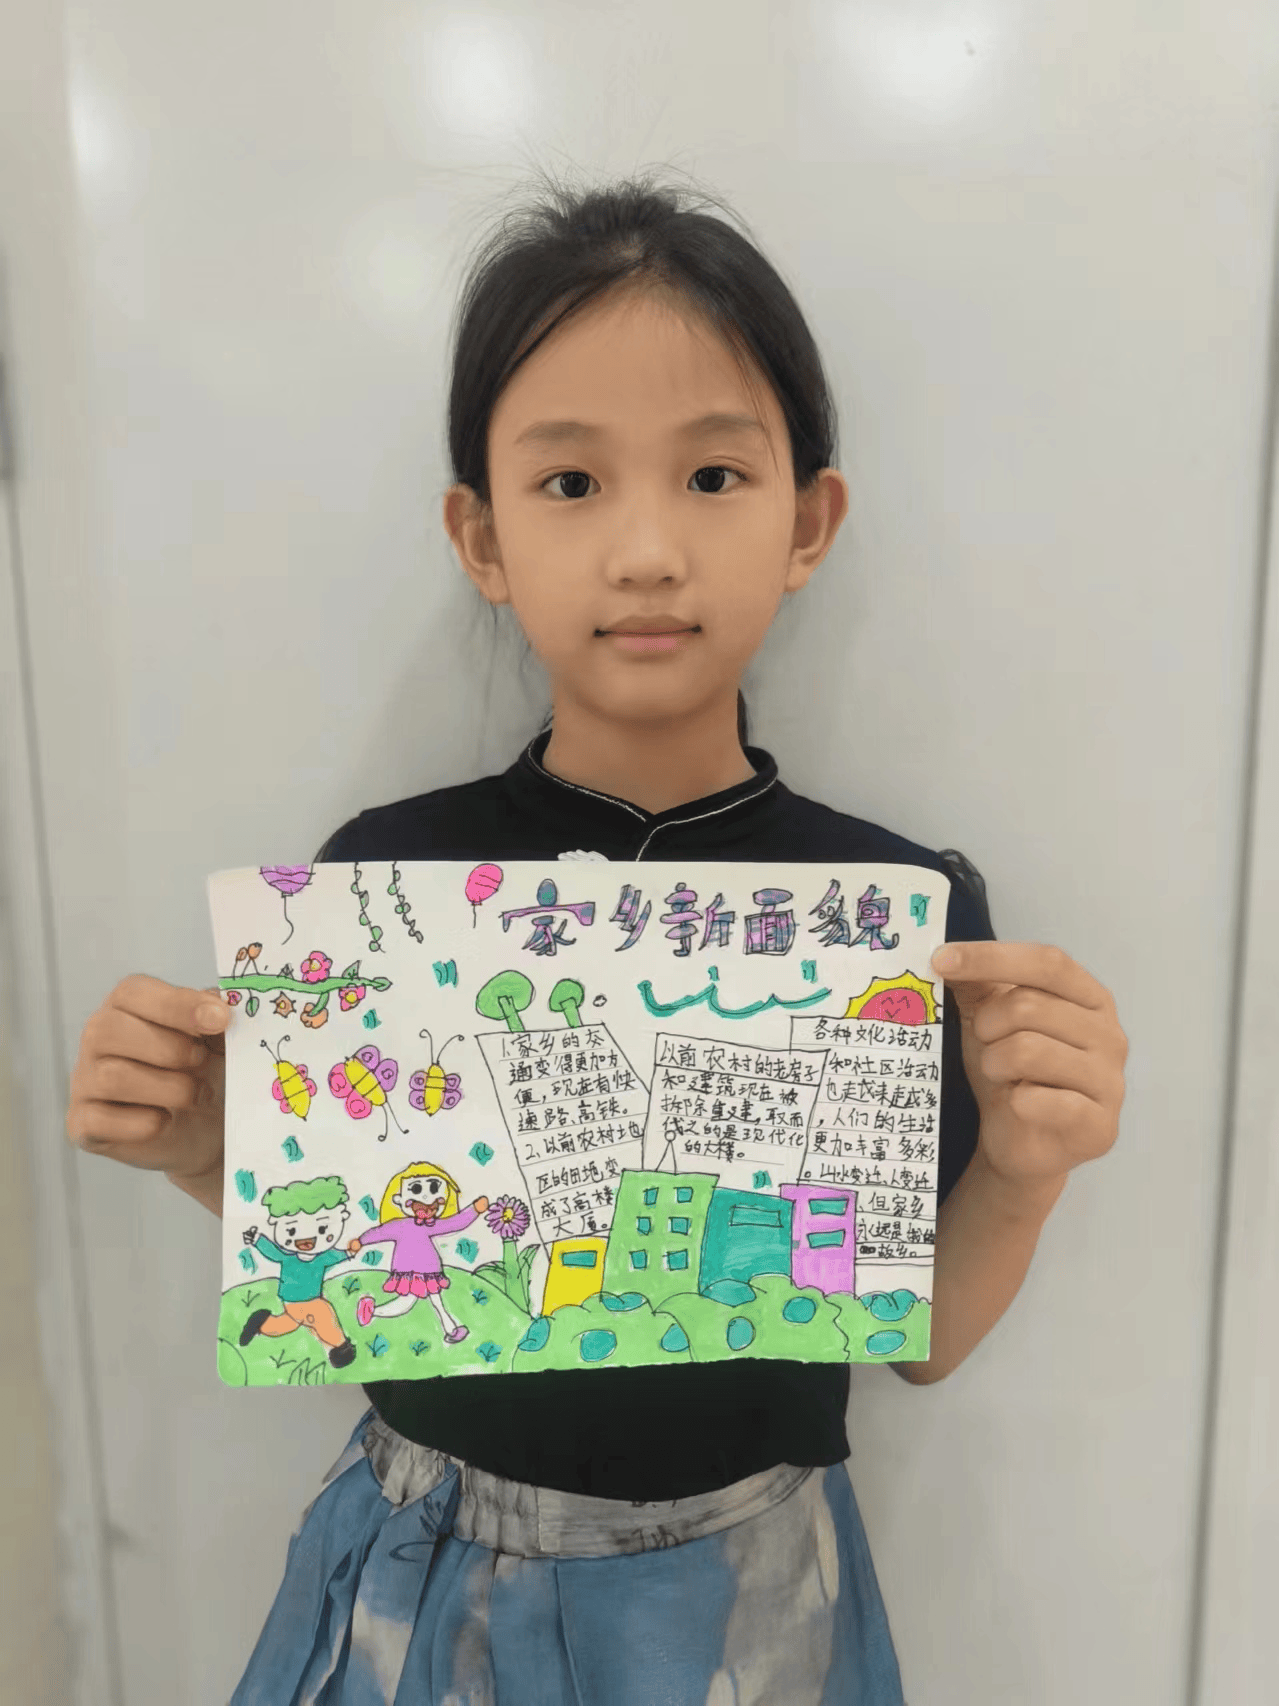 家乡新面貌
1、家乡的交
通变得更加方
便，现在有快
速路、高铁。
2、以前农村地
区的田地，变
成了高楼
大厦。
以前农村的老房子
和建筑现在被
拆除重建，取而
代之的是现代化
的大楼。
各种文化活动
和社区活动
也走越来走越多
，人们的生活
更加丰富多彩
。山水变迁、人变迁
、但家乡
永远是我的
故乡。